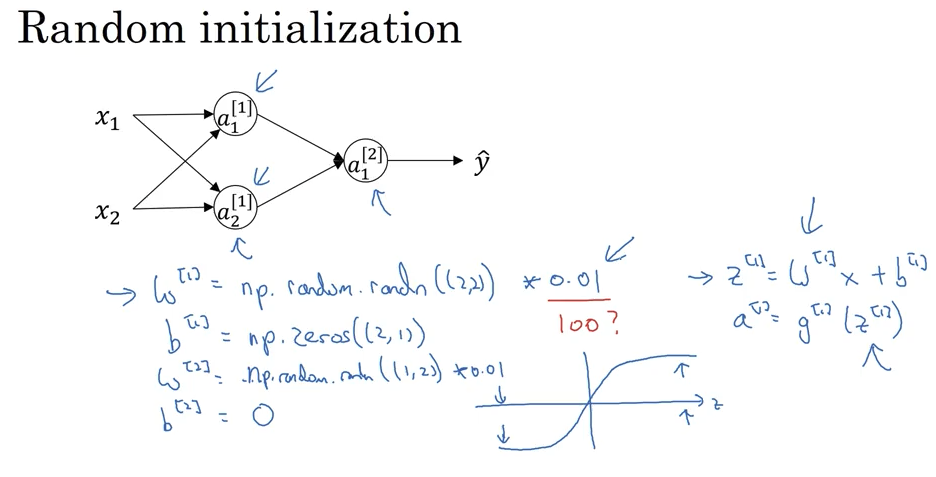 Random initialization
x₁
a₁^[1]
x₂
a₂^[1]
a₁^[2]
ŷ
→ W^[1] = np.random.randn((2,2)) * 0.01
100?
b^[1] = np.zeros((2,1))
W^[2] = np.random.randn((1,2)) * 0.01
b^[2] = 0
z
→ z^[1] = W^[1] x + b^[1]
a^[1] = g^[1](z^[1])